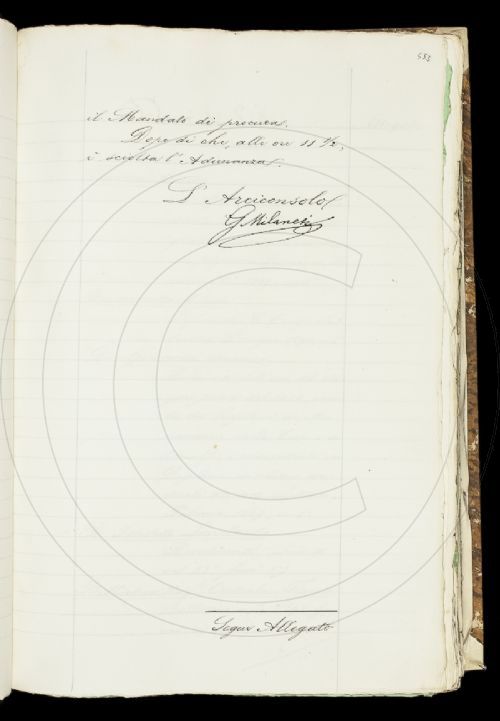 553
il Mandato di procura.
Dopo di che, alle ore 11 ½,
è sciolta l'Adunanza.
L'Arciconsolo
G Milanesi
Segue Allegato